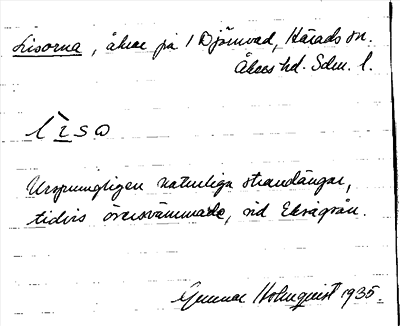 Lisorna, åkrar på 1 Björnvad, Härads sn.
Åkers hd. Sdm. l.
lisa
Ursprungligen naturliga strandängar,
tidvis översvämmade, vid Eksågsån.
Gunnar Holmquist 1935.